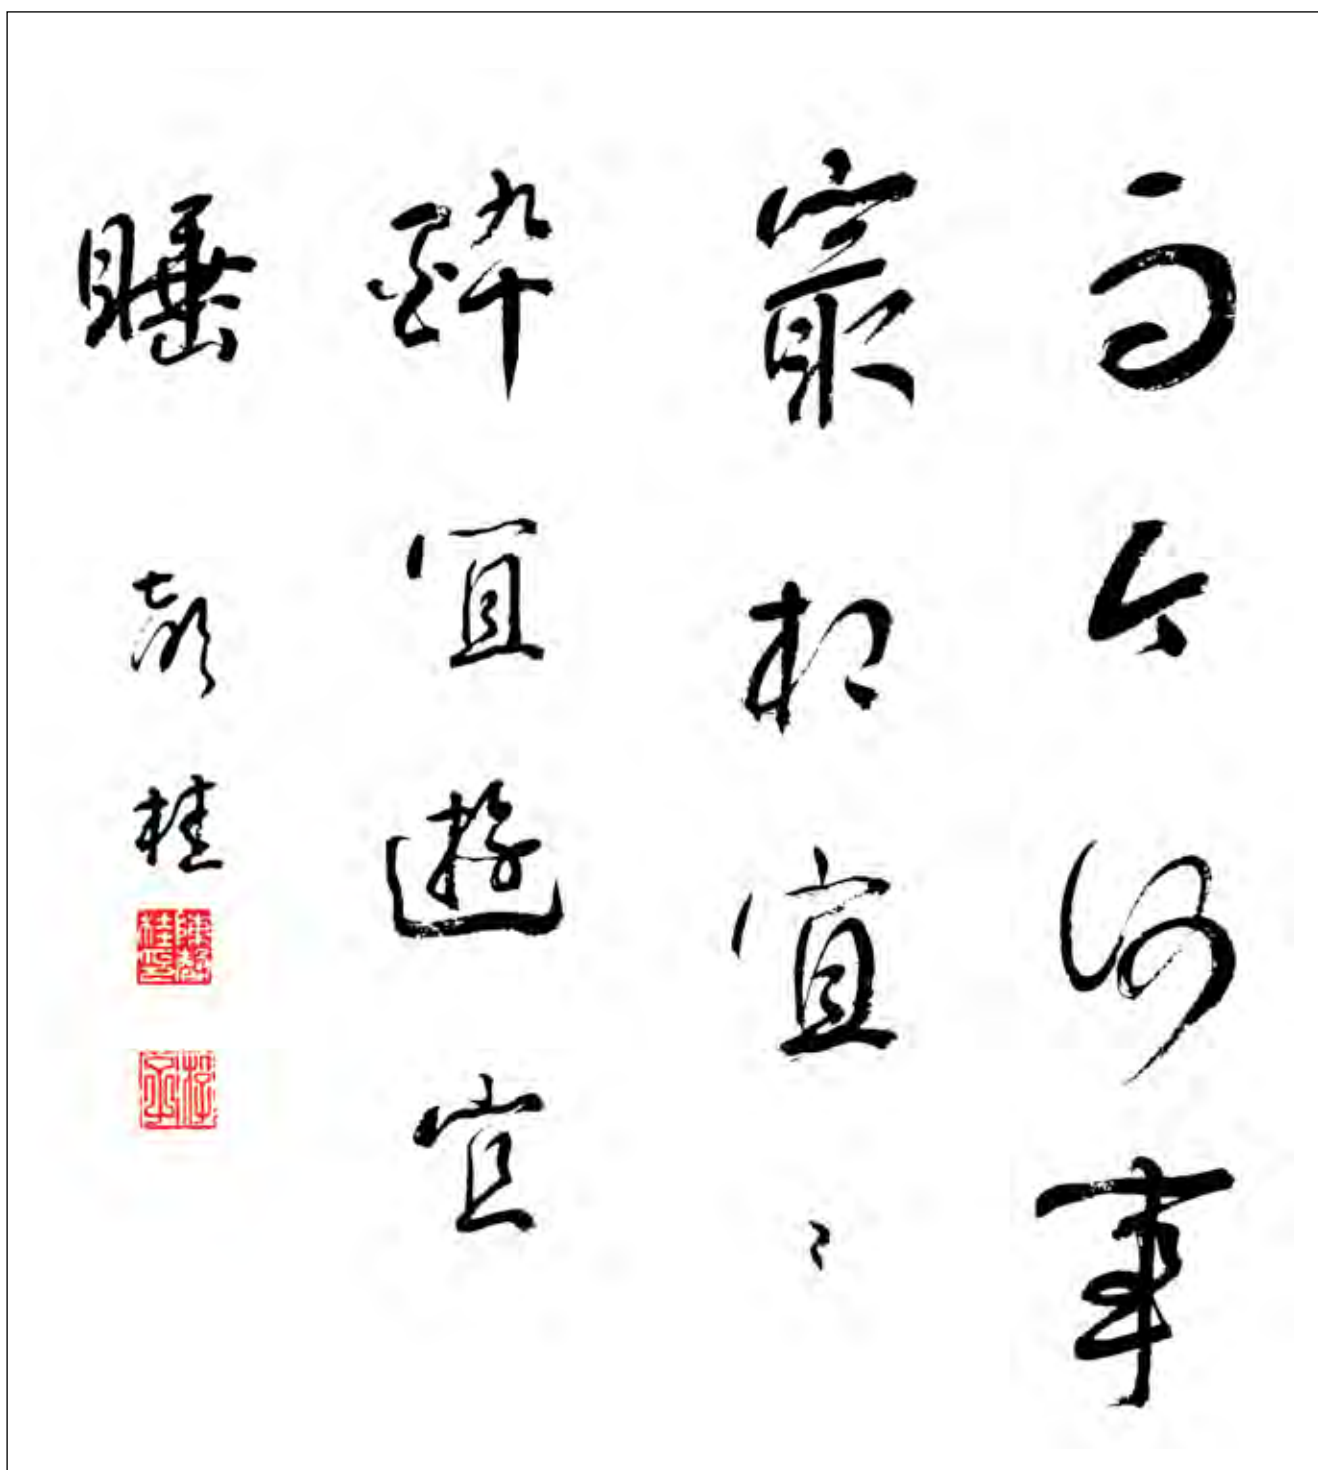 而今何事
最相宜々
醉宜遊宜
睡
聲桂
陳聲桂印